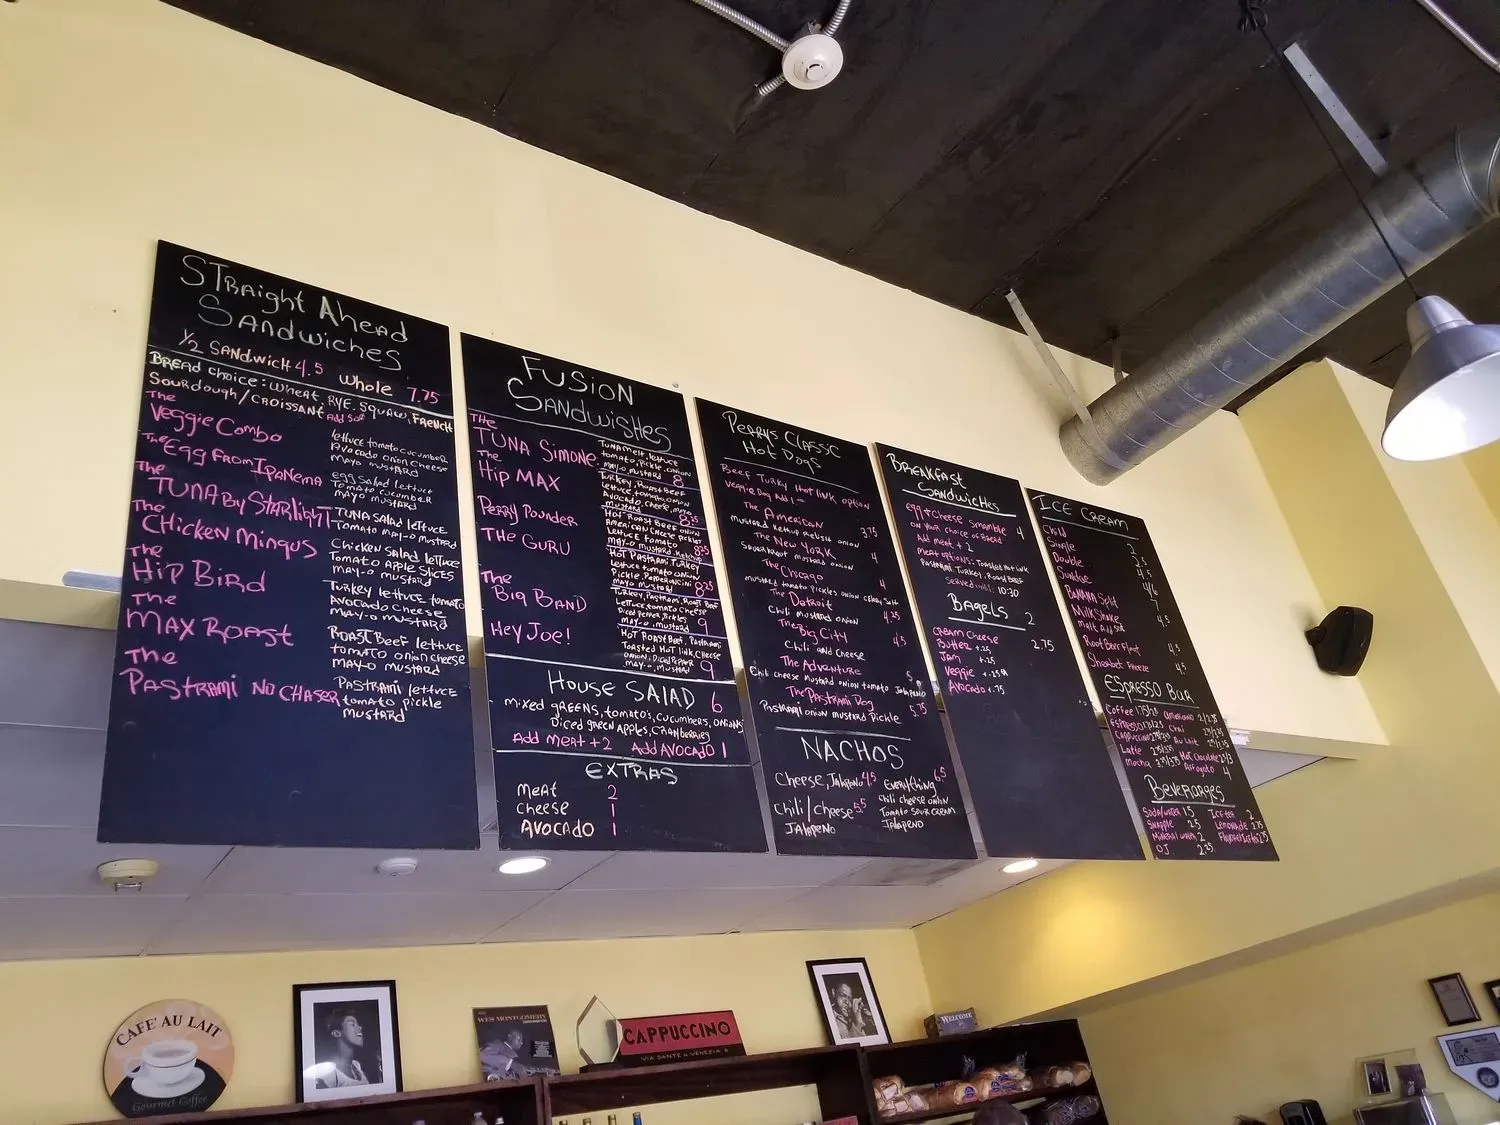 STRaight AheAd
SANdwiches
1/2 SANdwich 4.5 whole 7.75
BREAd choice: wheat, RYE, SQuawo, FRENCH
Sourdough/CROISSANT Add
The
Veggie Combo
lettuce tomato cucumber
Avocado onion Cheese
MAYO MUSTARD
The Egg From IPANEMA
egg SAlAd lettuce
Tomato cucumber
MAYO MUSTARD
The
TUNA By StARlight
TUNA SAlAd lettuce
Tomato MAY-O MUSTARD
The
CHicken Mingus
Chicken SAlAd lettuce
TomAto Apple Slices
MAY-O MUSTARD
The
HiP BiRd
Turkey lettuce tomato
Avocado cheese
MAY-O MUSTARD
The
MAX ROAST
ROAST Beef lettuce
tomato onion cheese
MAY-O MUSTARD
The
PAStRAMi NO CHASER
PASTRAMi lettuce
tomato pickle
MUSTARD
FUSioN
SANDWISHES
The
TUNA Simone
TUNA Melt, lettuce
tomato, Pickle, onion
MAY-O MUSTARD 8
The
Hip MAX
TURKEY, ROAST BEEF
lettuce, tomato, onion
AVOCADO, Cheese, MAYO
MUSTARD 8.25
PERRY POUNDER
HOT ROAST BEEF onion
AMERICAN Cheese Pickles
LETTUCE TOMATO
MAY-O MUSTARD, Ketchup 8.25
THE GURU
HOT PASTRAMI, TURKEY
Lettuce tomato onion
Pickle, PEPPERONCINI
MAYO MUSTARD 8.25
The
Big BAND
TURKEY, PASTRAMI, ROAST Beef
Lettuce, tomato cheese
Diced PEPPER, Pickles
MAY-O, MUSTARD 9
HEY JOE!
HOT ROAST BEEF, PASTRAMI
TOASTED HOT link, CHEESE
ONION, DICED PEPPER
MAY-O, MUSTARD 9
HOUSE SALAD 6
mixed GREENS, tomato's, cucumbers, ONIONS
Diced green Apples, CRANberries
Add MEAT +2 Add AVOCADO 1
EXTRAS
MEAT 2
CHEESE 1
AVOCADO 1
PERRYS CLASSIC
Hot Dogs
Beef Turky Hot link option
Veggie Dog Add 1
The American 3.75
mustard ketchup relish onion
The New York 4
SAUERKRAUT mustard onion
The Chicago 4
mustard tomato pickles onion celery salt
The Detroit 4.25
Chili mustard onion
The Big City 4.5
Chili and Cheese
The Adventure 5
Chili cheese mustard onion tomato jalapeno
The Pastrami Dog 5.75
Pastrami onion mustard Pickle
NACHOS
Cheese, Jalapeno 4.5
Chili/cheese 5.5
JALAPENO
Everything 6.5
Chili cheese onion
Tomato sour cream
JALAPENO
BREAKFAST
Sandwiches
egg + Cheese Scramble 4
on your choice of Bread
Add meat + 2
meat options: Toasted Hot link
Pastrami, Turkey, Roast Beef
Served until: 10:30
BAgels 2
CREAM CHeese 2.75
Butter +.25
JAM +.25
Veggie +.25
AVOCADO +.75
ICE CREAM
Child 2
Single 2.5
Double 4.5
Sundae 4/6
BANANA Split 7
Milk Shake 4.5
Malt Add
Root beer Float 4.5
Sherbet Freeze 4.5
ESPRESSO BAR
Coffee Americano
Espresso Chai
Cappuccino Au Lait
Latte Hot Chocolate
Mocha Affogato 4
Beverages
Soda/water 1.5 ICE tea 2
Snapple 2.5 Lemonade 2.75
Mineral water 2
OJ 2.25
CAFE' AU LAIT
Gourmet Coffee
WES MONTGOMERY
CAPPUCCINO
VIA DANTE & VENEZIA 8
WELCOME